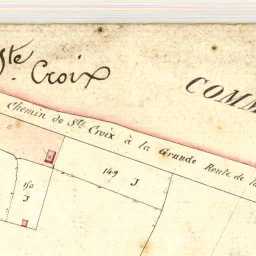 Ste
Croix
COMM
Chemin de Ste Croix à la Grande Route de la
149 J
150
J